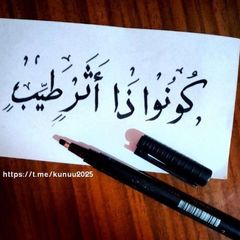 كُونُوا ذَا أَثَرٍ طَيِّبٍ
https://t.me/kunuu2025